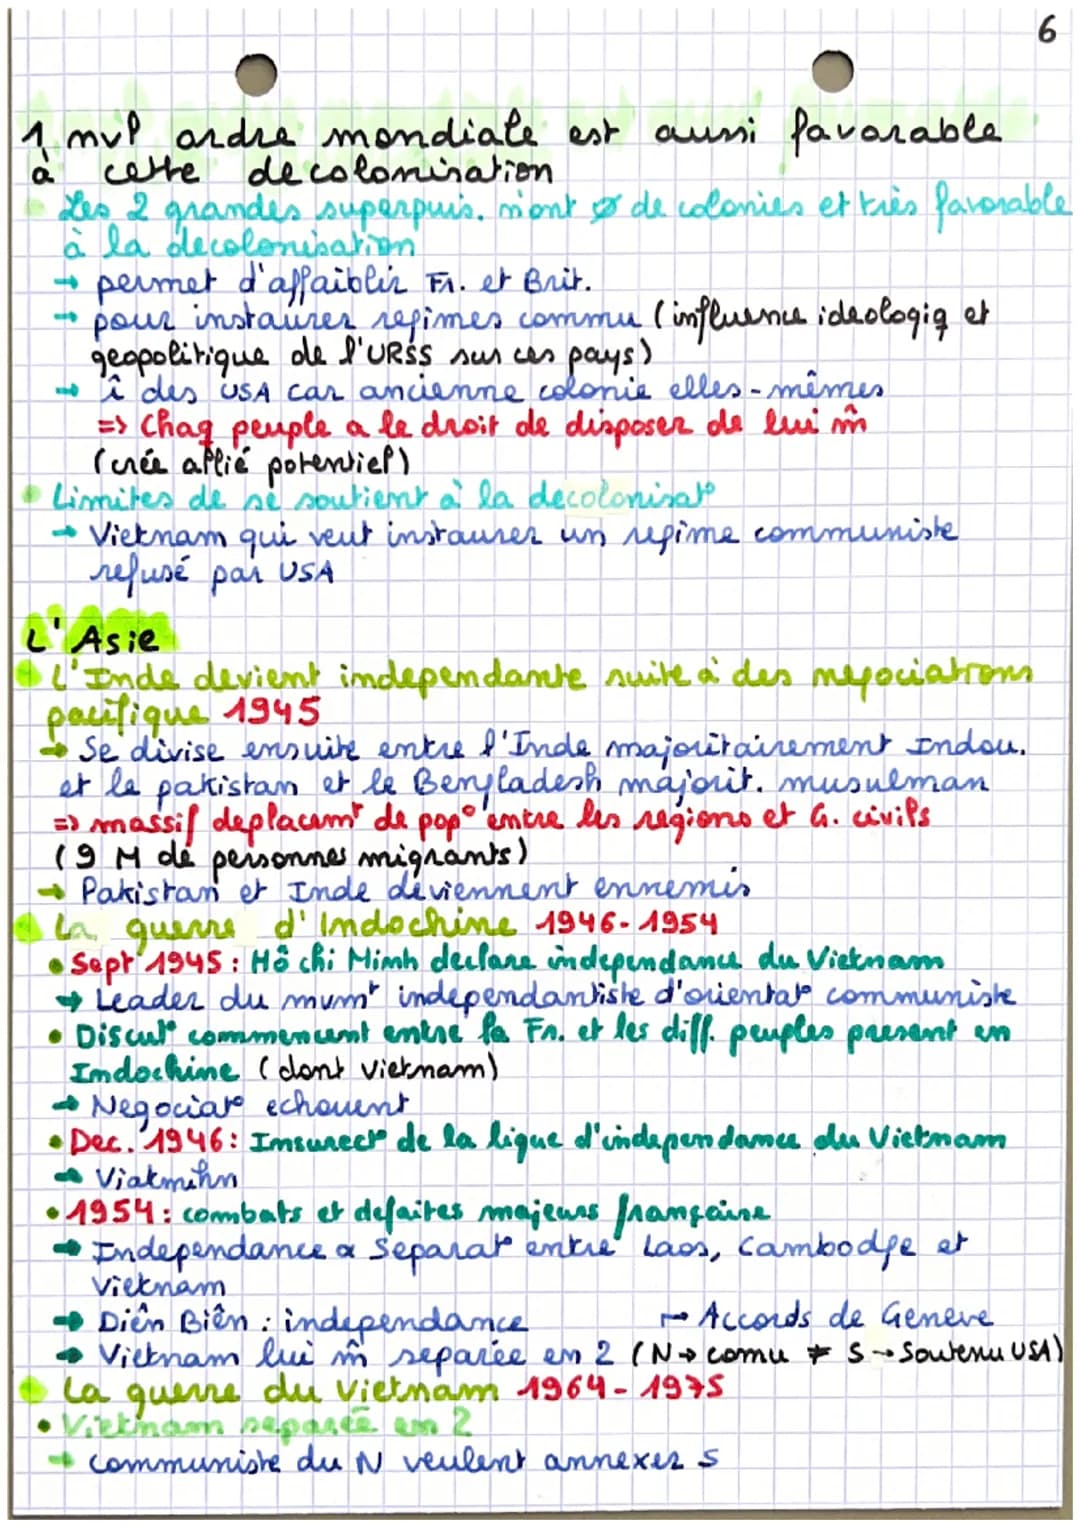 6
1 mvl ordre mondiale est aussi favorable
à cette decolonisation
Les 2 grandes superpuis. n'ont ø de colonies et très favorable
à la decolonisation
→ permet d'affaiblir Fr. et Brit.
→ pour instaurer regimes commu (influence ideologiq et
geopolitique de l'URSS sur ces pays)
→ î des USA car ancienne colonie elles-mêmes
=> Chaq peuple a le droit de disposer de lui m̂
(crée allié potentiel)
• Limites de se soutient à la decolonisat°
→ Vietnam qui veut instaurer un regime communiste
refusé par USA
L'Asie
• L'Inde devient independante suite à des negociations
pacifique 1945
→ Se divise ensuite entre l'Inde majoritairement Indou.
et le pakistan et le Bengladesh majorit. musulman
=> massif deplacemt de pop° entre les regions et G. civils
(9 M de personnes migrants)
→ Pakistan et Inde deviennent ennemis
• La guerre d'Indochine 1946-1954
• Sept 1945 : Hô chi Minh declare independance du Vietnam
→ Leader du mvmt independantiste d'orientat° communiste
• Discut° commencent entre la Fr. et les diff. peuples present en
Indochine (dont Vietnam)
→ Negociat° echouent
• Dec. 1946 : Insurect° de la ligue d'independance du Vietnam
→ Viatmihn
• 1954 : combats et defaites majeurs française
→ Independance & Separat° entre Laos, Cambodge et
Vietnam
→ Diên Biên : independance → Accords de Geneve
→ Vietnam lui m̂ separée en 2 (N → comu ≠ S → Soutenu USA)
• La guerre du Vietnam 1964-1975
• Vietnam separée en 2
→ communiste du N veulent annexer S